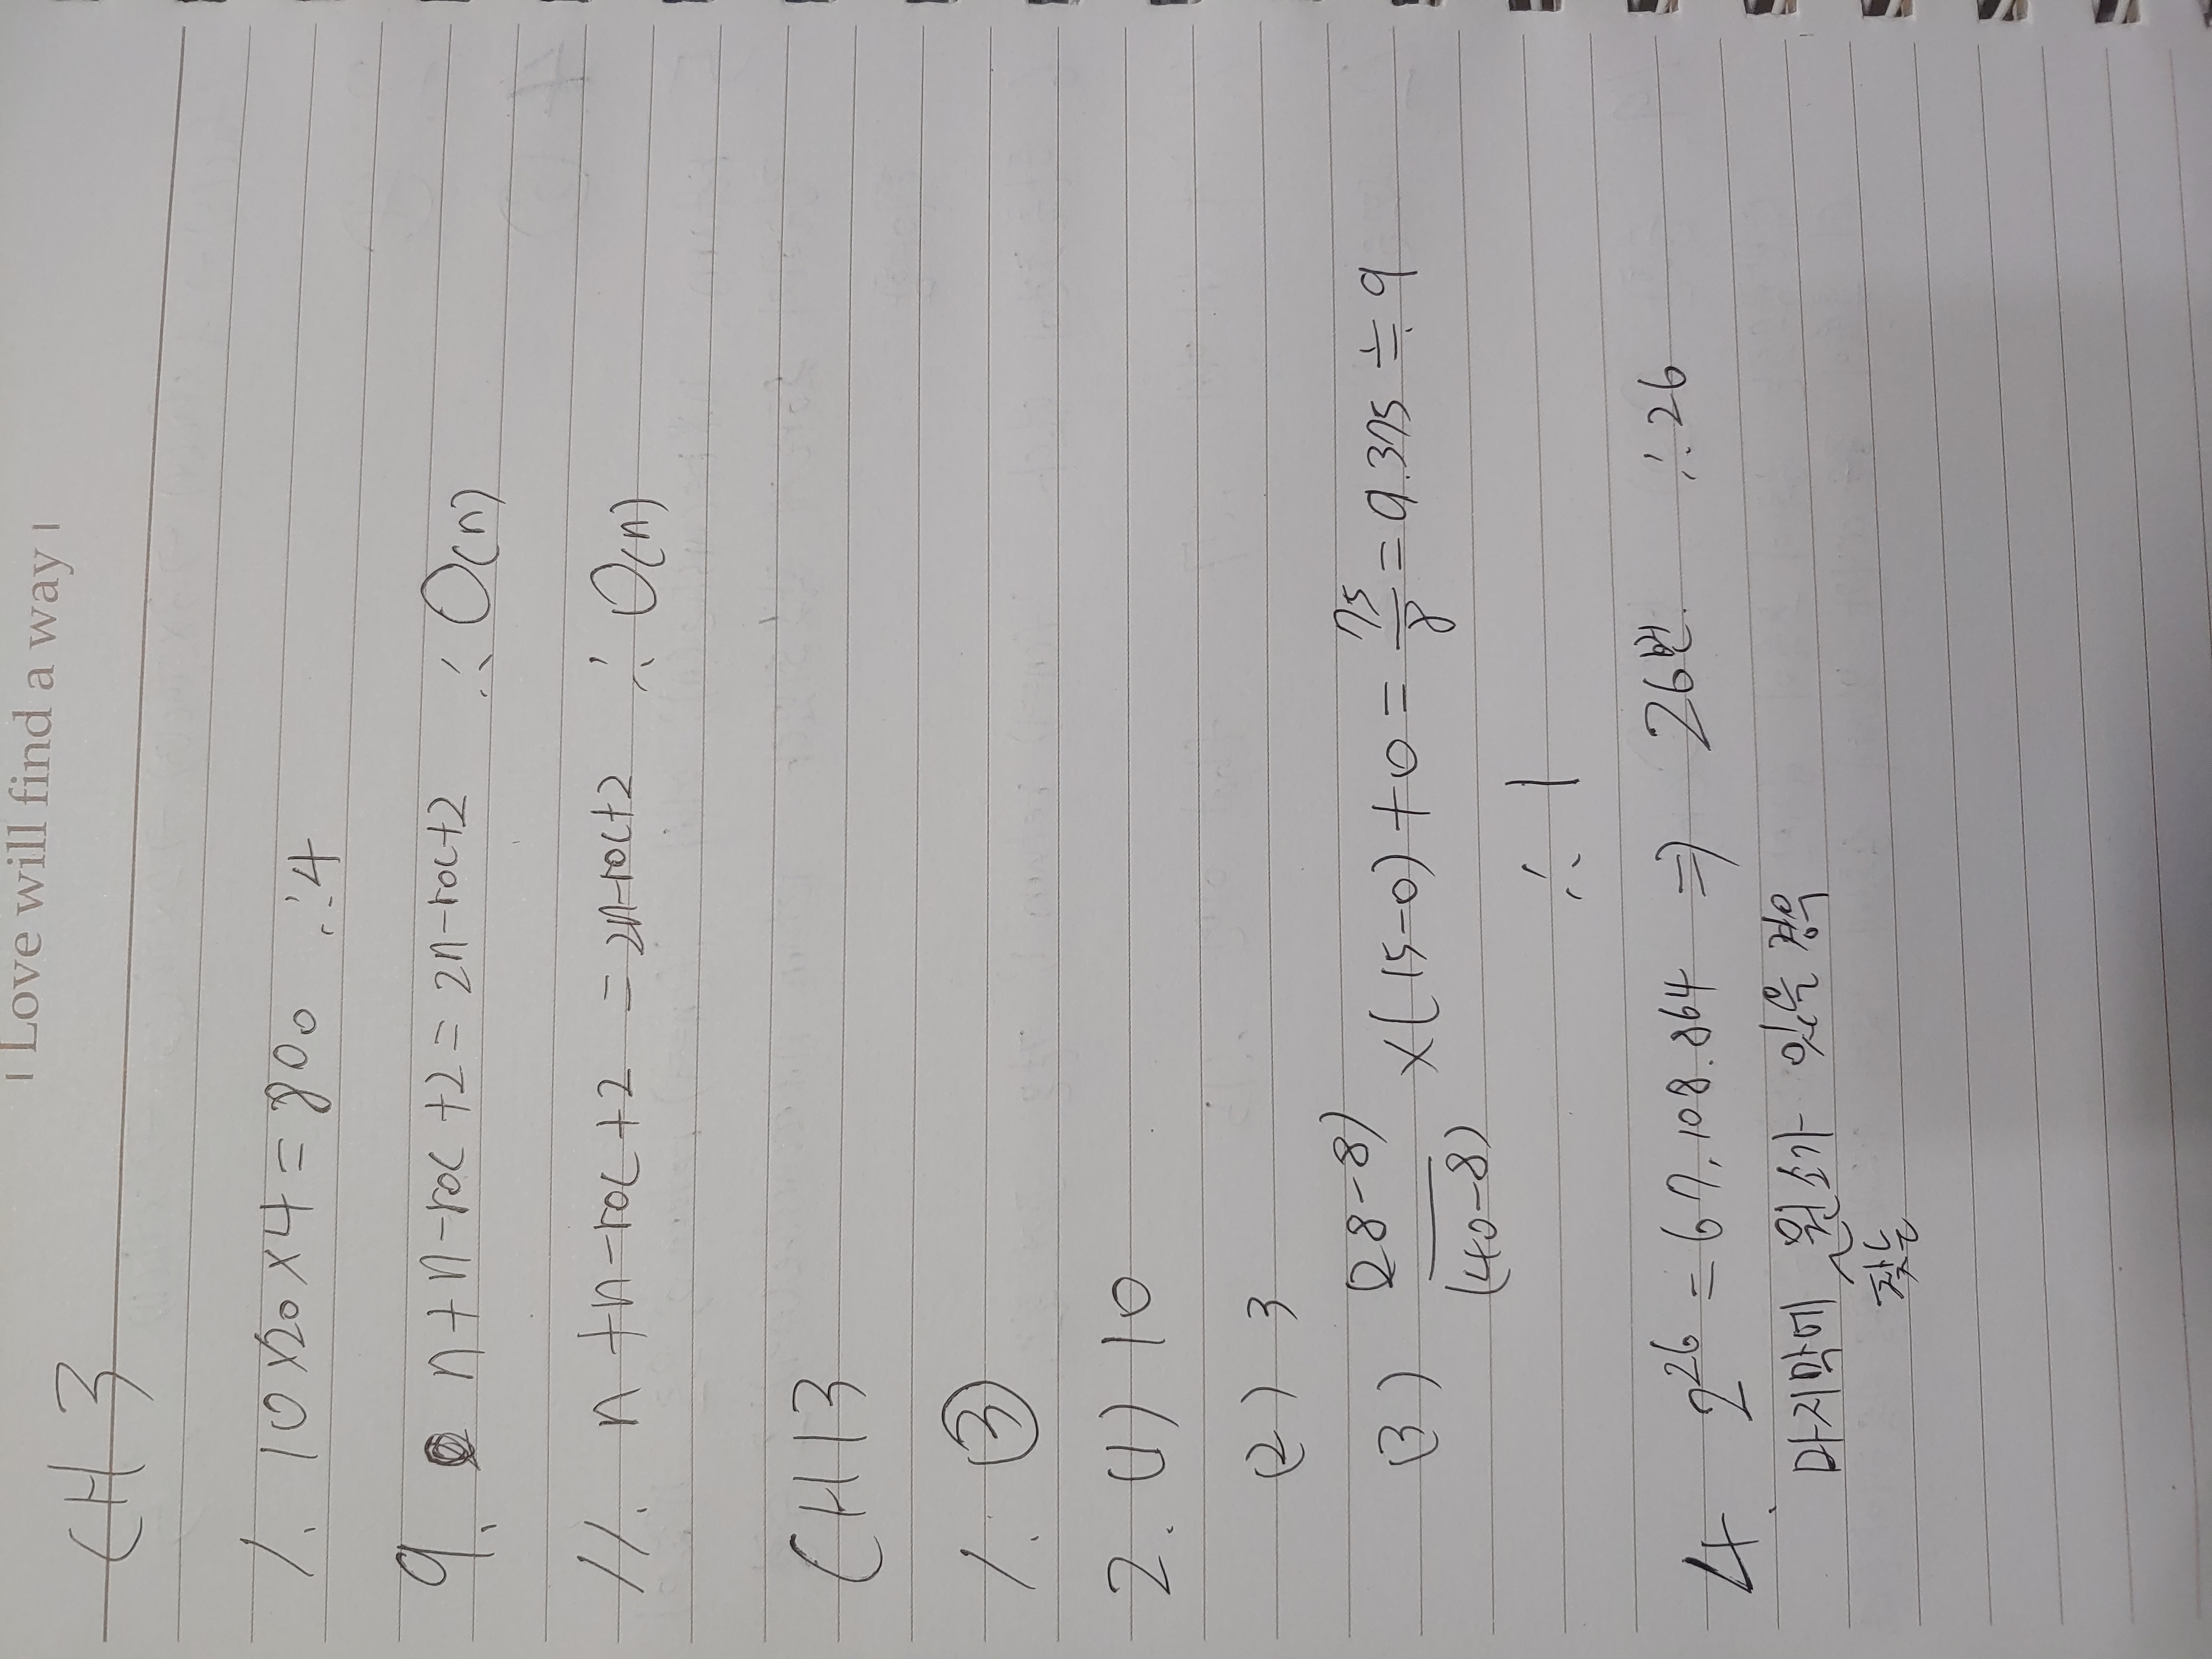 | Love will find a way |
CH 3
1. 10×20×4=800 ∴4
9. n+n-roc+2=2n-roc+2 ∴O(n)
11. n+n-roc+2=2n-roc+2 ∴O(n)
CH13
1. ③
2. (1) 10
(2) 3
(3) (28-8)/(40-8) ×(15-0)+0=75/8=9.375≒9
∴1
4. 2^26=67,108.864 ⇒ 26번. ∴26
마지막에 원소가 있을 경우
찾는